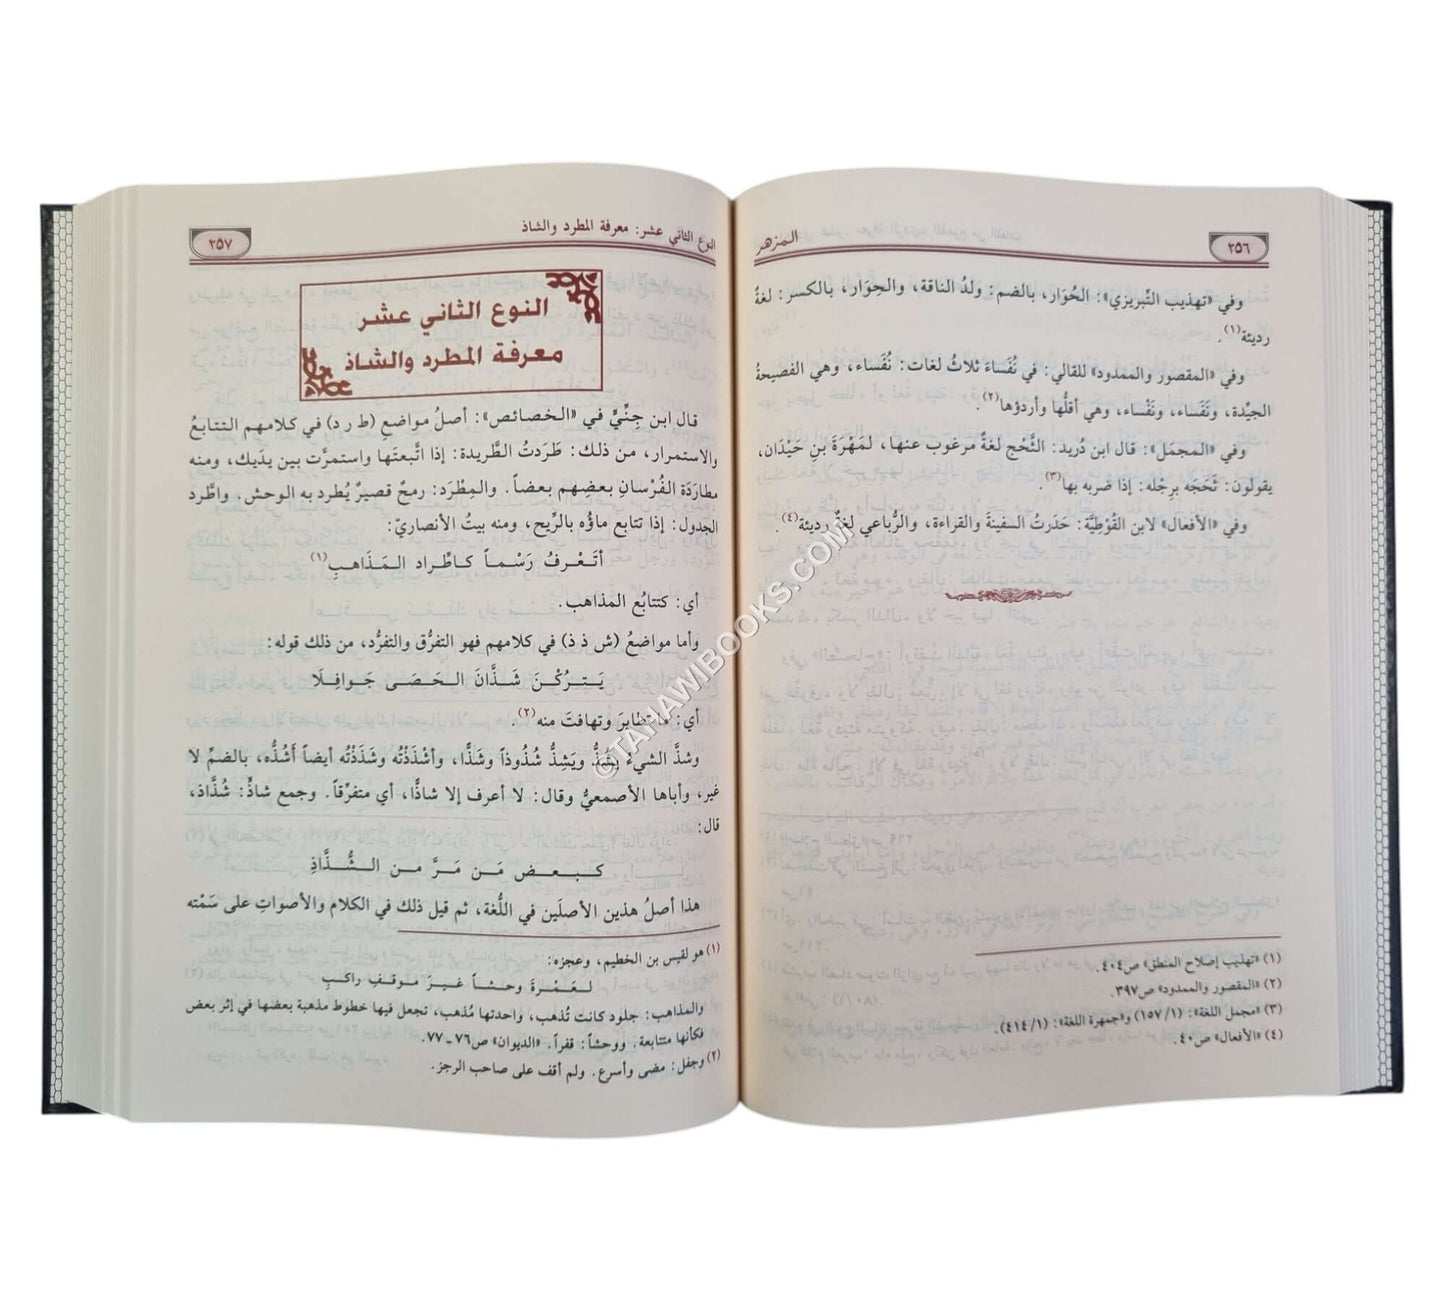 ٢٥٦
المزهر
وفي «تهذيب التِّبريزي»: الحُوَار، بالضم: ولدُ الناقة، والحِوَار، بالكسر: لغةٌ
رديئة(١).
وفي «المقصور والممدود» للقالي: في نُفَساءَ ثلاثُ لغات: نُفَساء، وهي الفصيحةُ
الجيِّدة، ونَفَساء، ونَفْساء، وهي أقلُّها وأردؤها(٢).
وفي «المجمَل»: قال ابن دُريد: الثَّحْج لغةٌ مرغوب عنها، لمَهْرَةَ بنِ حَيْدَان،
يقولون: ثَحَجَه برِجْله: إذا ضربه بها(٣).
وفي «الأفعال» لابن القُوْطِيَّة: حَدَرتُ السفينةَ والقراءة، والرُّباعي لغةٌ رديئة(٤).
(١) «تهذيب إصلاح المنطق» ص٤٠٤.
(٢) «المقصور والممدود» ص٣٩٧.
(٣) «مجمل اللغة»: (١/ ١٥٧) و«جمهرة اللغة»: (٤١٤/١).
(٤) «الأفعال» ص٤٠.
النوع الثاني عشر: معرفة المطرد والشاذ
٢٥٧
النوع الثاني عشر
معرفة المطرد والشاذ
قال ابن جِنِّيٍّ في «الخصائص»: أصلُ مواضعِ (ط ر د) في كلامهم التتابعُ
والاستمرار، من ذلك: طَرَدتُ الطَّريدة: إذا اتَّبعتَها واستمرَّت بين يدَيك، ومنه
مطارَدَة الفُرْسانِ بعضِهم بعضاً. والمِطْرَد: رمحٌ قصيرٌ يُطرد به الوحش. واطَّرد
الجدول: إذا تتابع ماؤُه بالرِّيح، ومنه بيتُ الأنصاريّ:
أتَعْرفُ رَسْماً كاطِّراد المَذَاهبِ(١)
أي: كتتابُع المذاهب.
وأما مواضعُ (ش ذ ذ) في كلامهم فهو التفرُّق والتفرُّد، من ذلك قوله:
يَترُكْنَ شَذَّانَ الحَصَى جَوافِلَا
أي: ما تطايرَ وتهافتَ منه(٢).
وشذَّ الشيءُ يَشُذُّ ويَشِذُّ شُذُوذاً وشَذًّا، وأشْذَذْتُه وشَذَذْتُه أيضاً أَشُذُّه، بالضمِّ لا
غير، وأباها الأصمعيُّ وقال: لا أعرف إلا شاذًّا، أي متفرِّقاً. وجمع شاذٍّ: شُذَّاذ،
قال:
كبعض مَن مَرَّ من الشُّذَّاذِ
هذا أصلُ هذين الأصلَين في اللُّغة، ثم قيل ذلك في الكلام والأصواتِ على سَمْته
(١) هو لقيس بن الخطيم، وعجزه:
لعَمْرةَ وحشاً غيرَ موقفِ راكبِ
والمذاهب: جلود كانت تُذهب، واحدتها مُذهب، تجعل فيها خطوط مذهبة بعضها في إثر بعض
فكأنها متتابعة. ووحشاً: قفراً. «الديوان» ص٧٦ـ٧٧.
(٢) وجفل: مضى وأسرع. ولم أقف على صاحب الرجز.
©TAHAWIBOOKS.COM